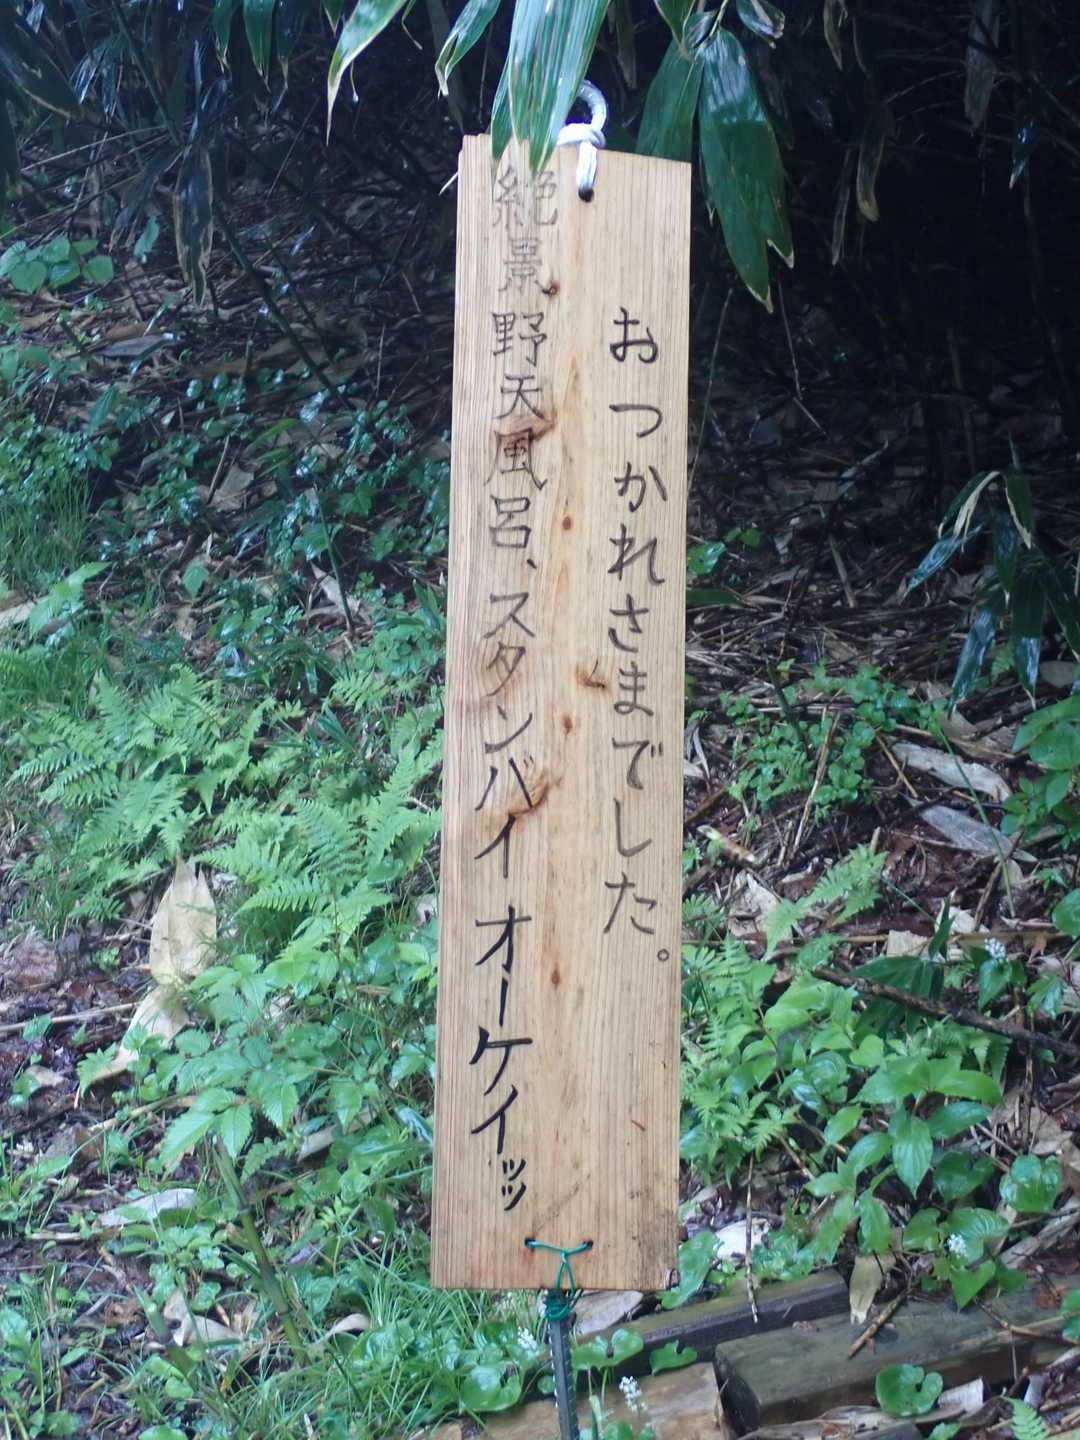 おつかれさまでした。
絶景野天風呂、スタンバイオーケイッッ